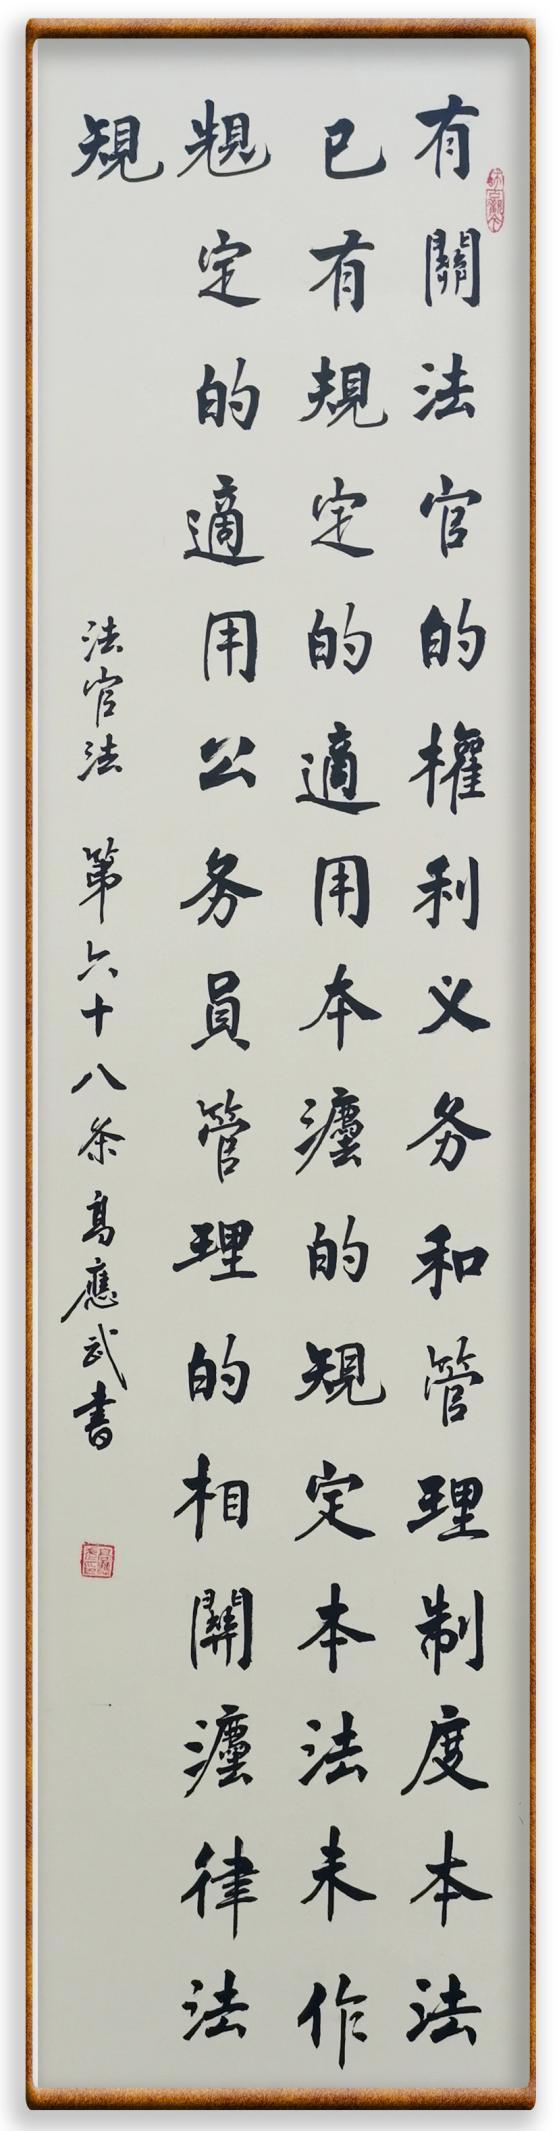 有關法官的權利义务和管理制度本法
已有規定的適用本灋的規定本法未作
規定的適用公务員管理的相關灋律法
規
法官法 第六十八条高應武書